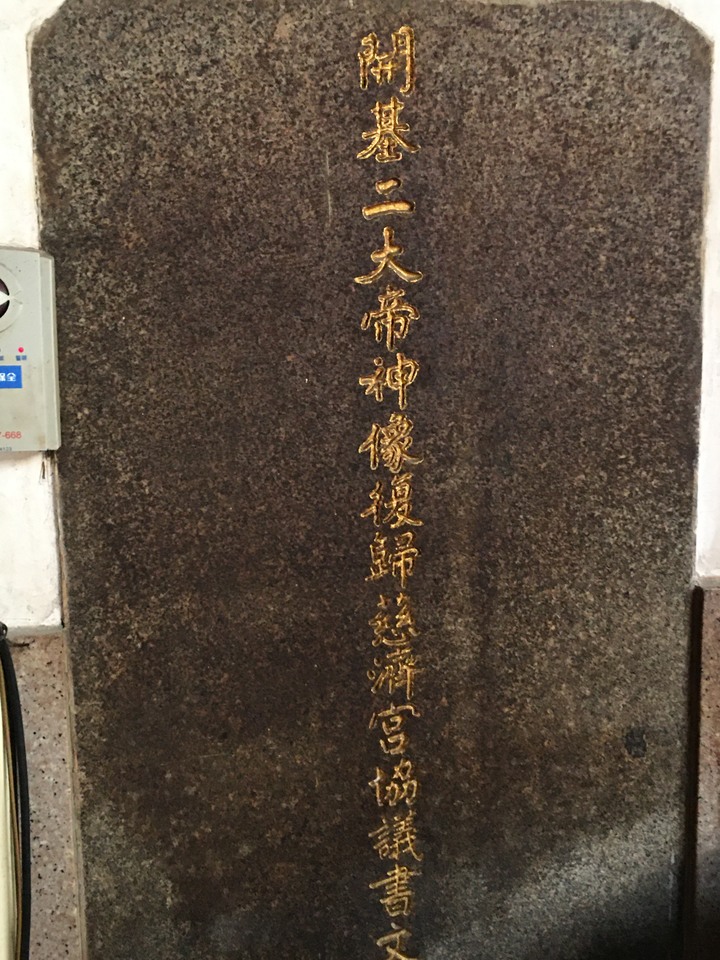 開基二大帝神像復歸慈濟宮協議書文
保全
-668